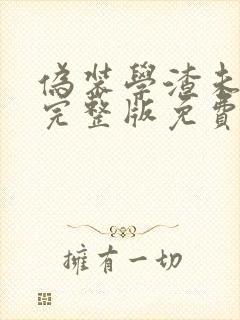 偽裝學渣未
完整版免費
擁有一切